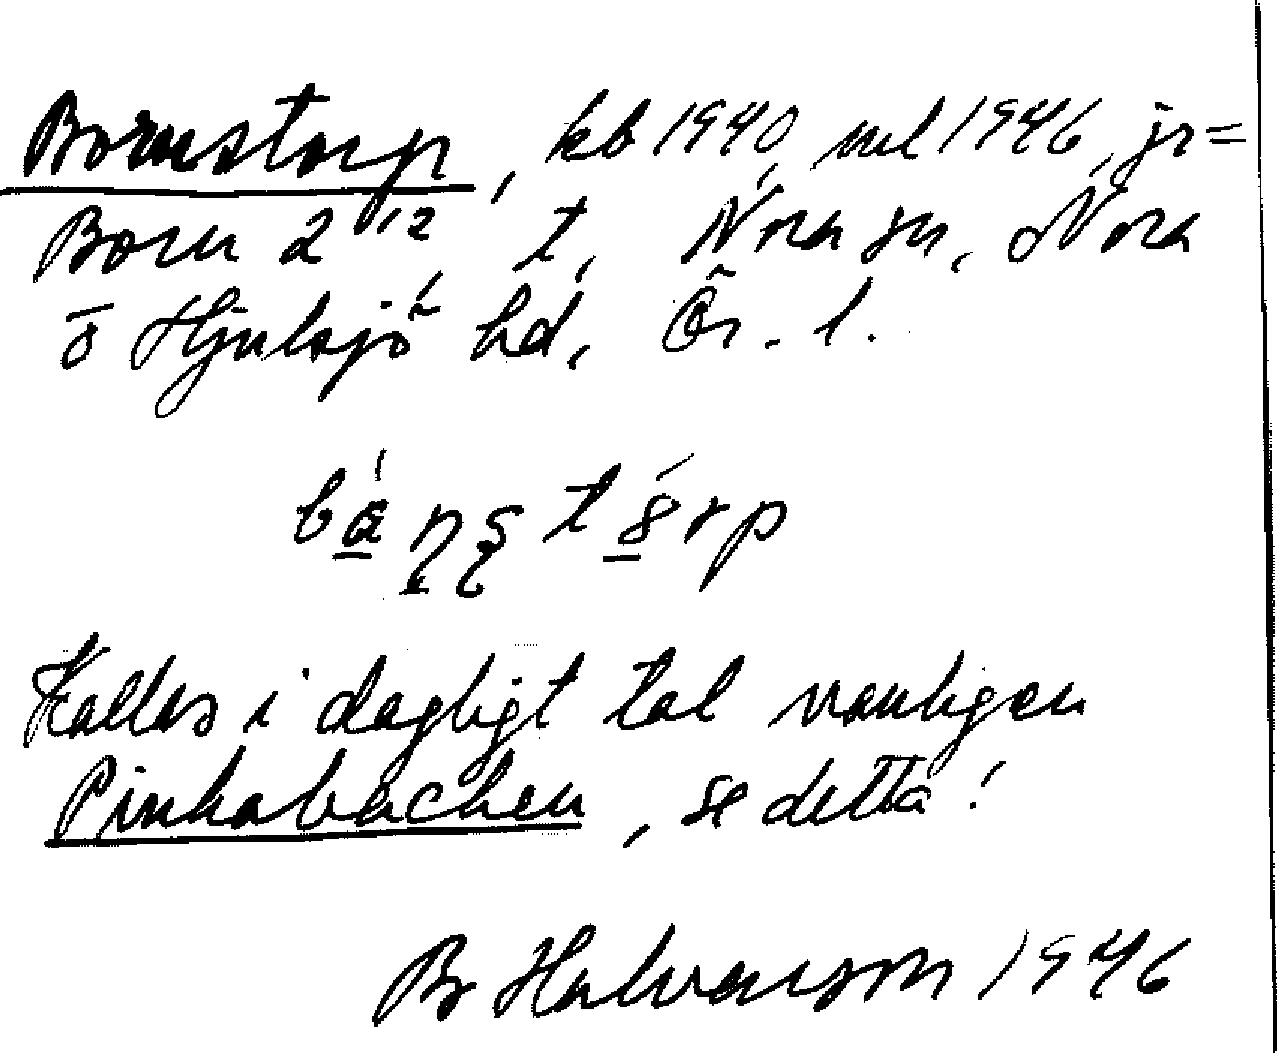 Bornstorp, kb 1940, ml 1946, jr=
Born 2¹², t, Nora sn, Nora
o Hjulsjö hd, Ör. l.
Kallas i dagligt tal vanligen
Pinkabacken, se detta!
B Halvarson 1946